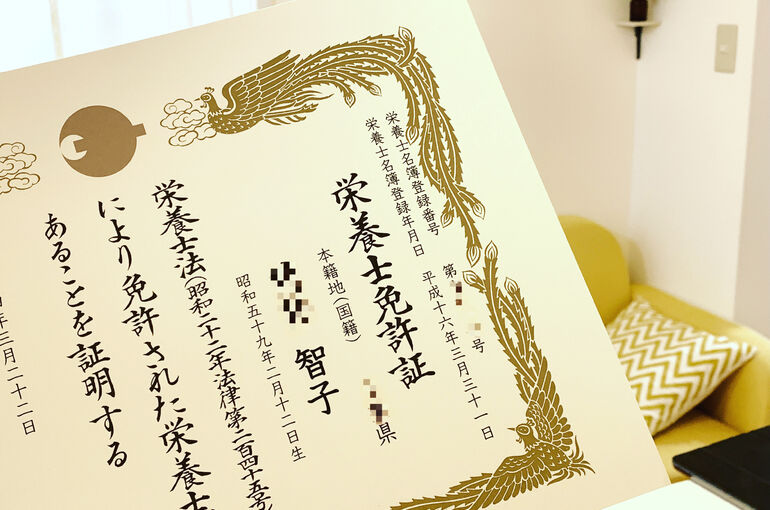 栄養士名簿登録番号 第 号
栄養士名簿登録年月日 平成十六年三月三十一日
栄養士免許証
本籍地(国籍) 県
智子
昭和五十九年二月十二日生
栄養士法(昭和二十二年法律第二百四十五号
により免許された栄養士
あることを証明する
年三月二十二日